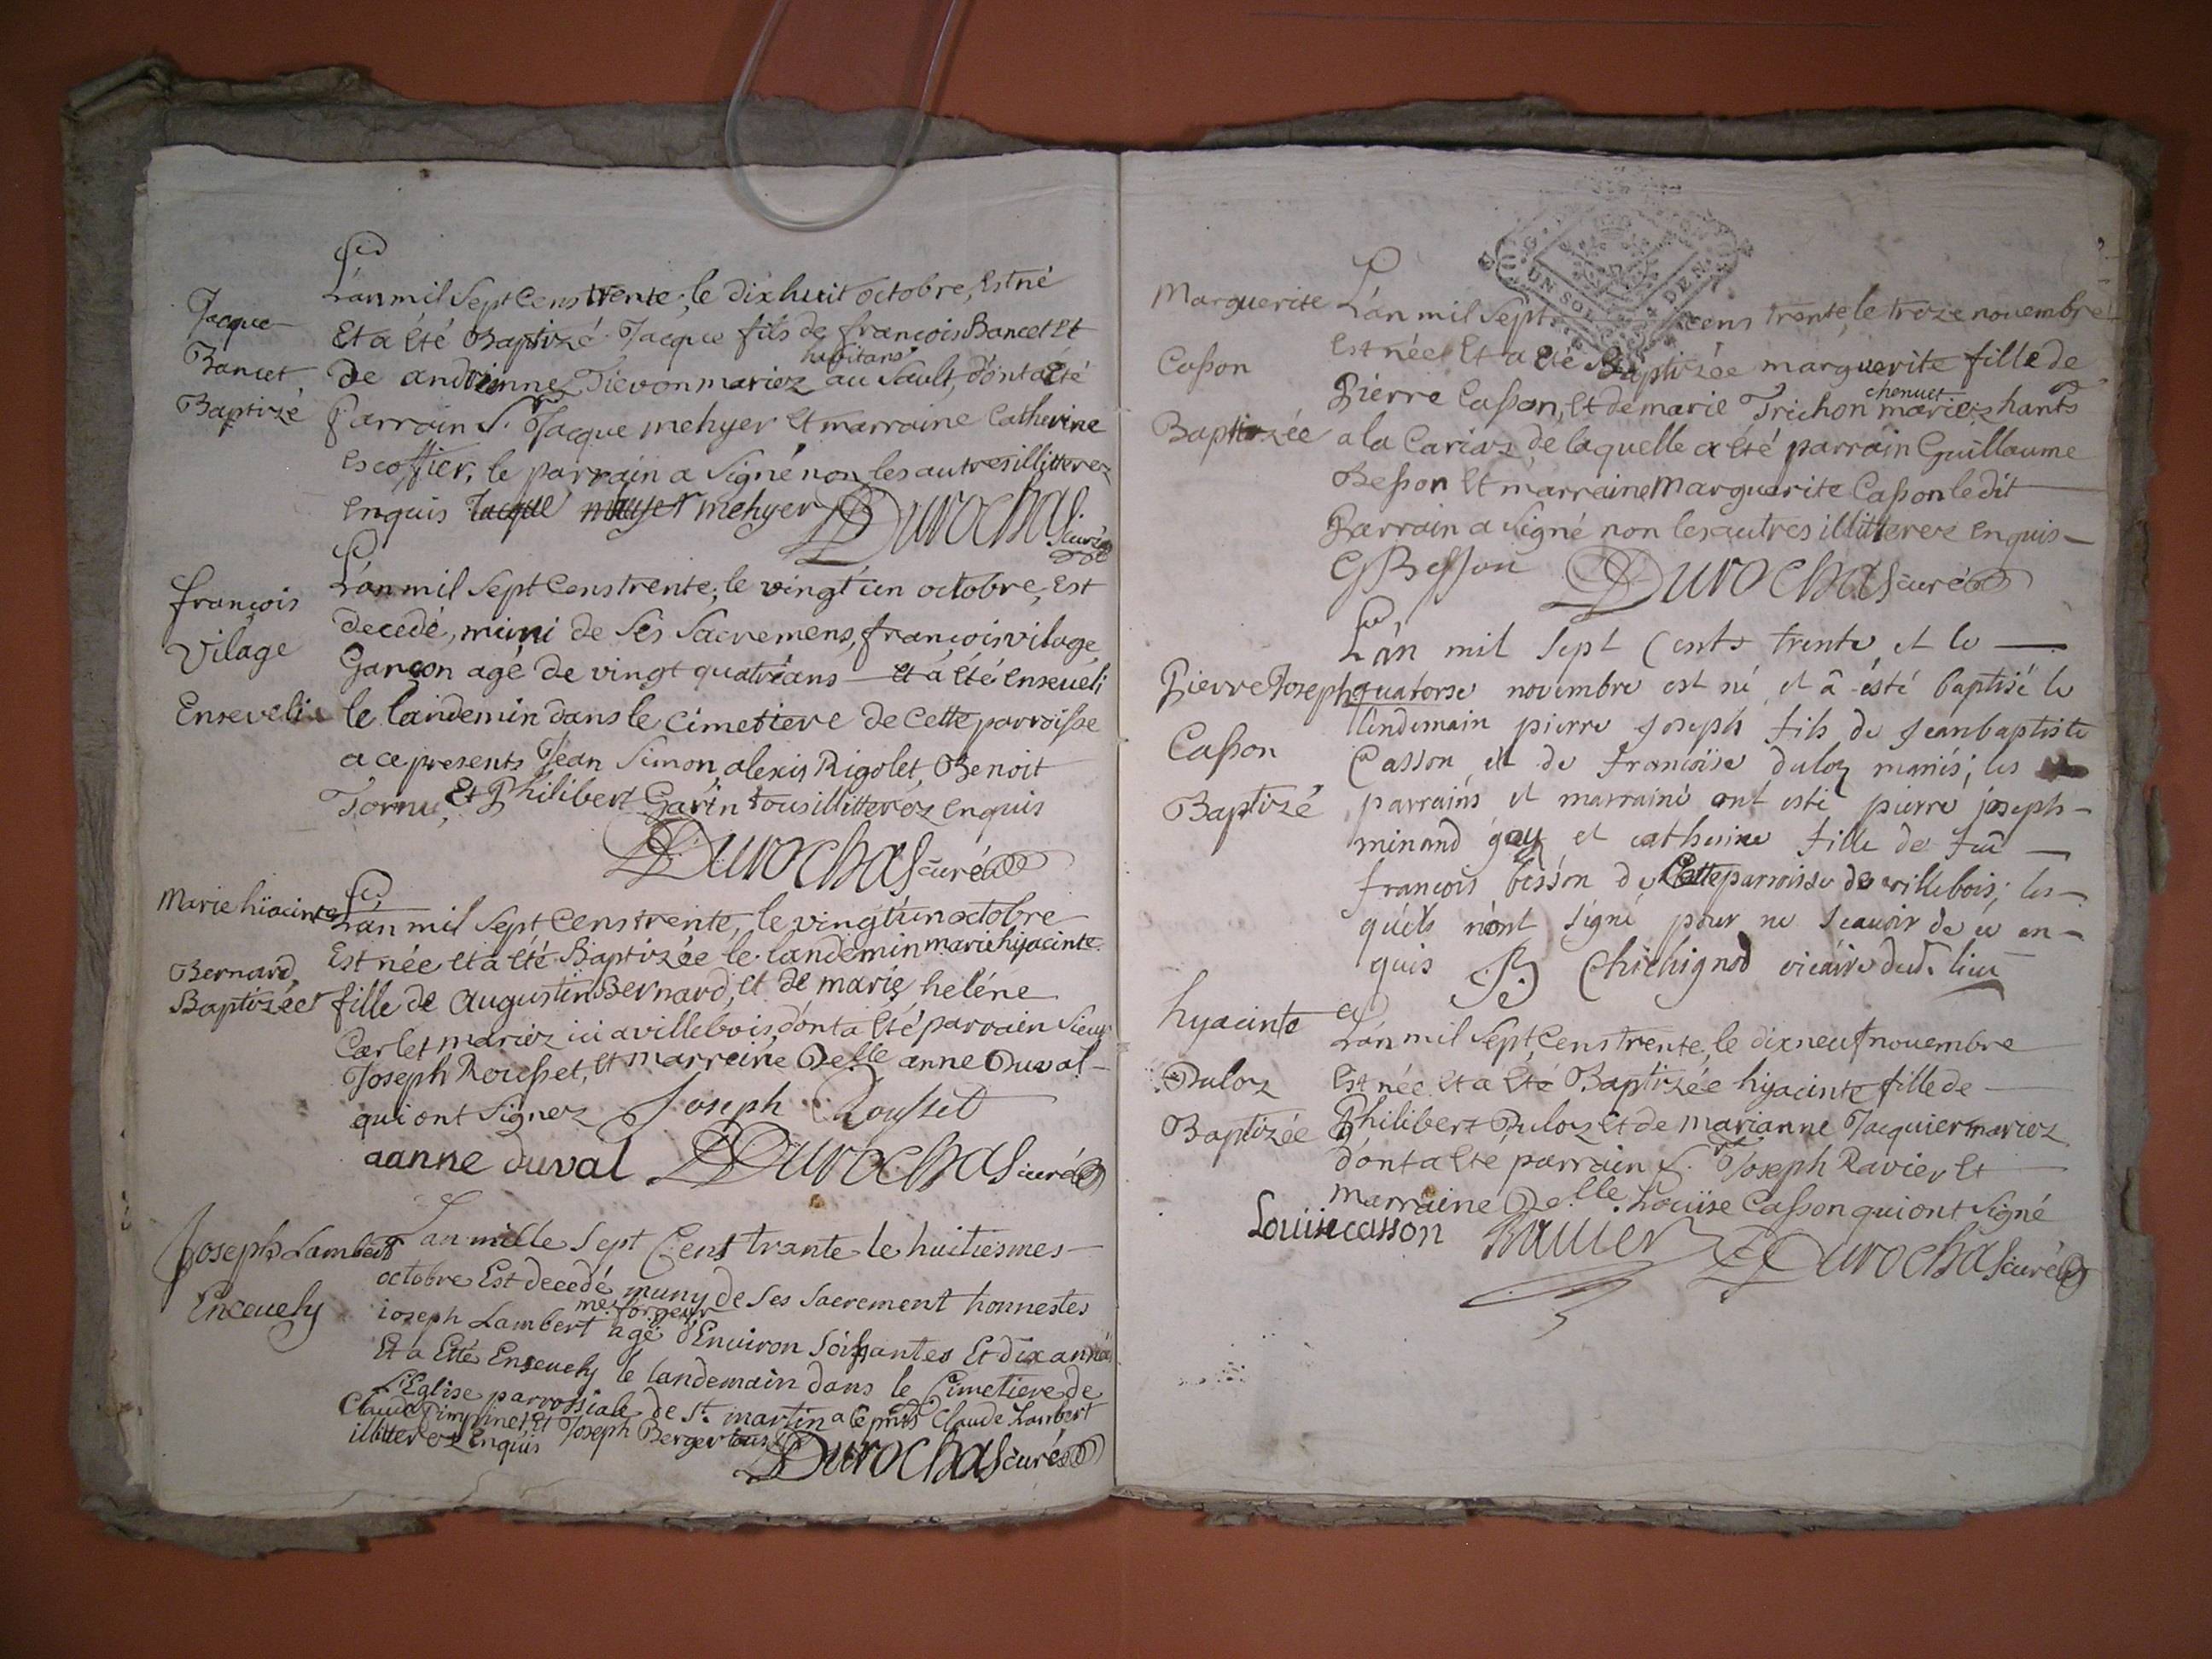 Jacque
Bancet
Baptizé
L'an mil Sept Cens trente, le dixhuit octobre, Est né
Et a été Baptizé Jacque fils de françois Bancet Et
habitans
de andrienne Tievon mariez au Sault, dont a Eté
Parrain Sr. Jacque mehyer Et marraine Catherine
Escoffier, le parrain a Signé non les autres illitterez
Enquis Jacque mehyer Durochas curé
françois
Vilage
Enseveli
L'an mil Sept Cens trente, le vingt un octobre, Est
decedé, muni de Ses Sacremens, françois vilage
Garçon agé de vingt quatre ans Et a été Enseveli
le landemin dans le Cimetiere de Cette parroisse
a ce presents Jean Simon, alexis Rigolet, Benoit
Tornu, Et Philibert Garin tous illitterez Enquis
Durochas curé
Marie hïacinte
Bernard,
Baptizée
L'an mil Sept Cens trente, le vingt un octobre
Est née Et a été Baptizée le landemin marie hyacinte
fille de Augustin Bernard, Et de marie heléne
Carlet mariez ici a villebois, dont a Eté parrain Sieur
Joseph Rousset, Et marreine Delle anne Duval
qui ont Signez Joseph Rousset
aanne duval Durochas curé
Joseph Lambert
Enceuely
Lan mille Sept Cens trante le huitiesmes
octobre Est decedé muny de Ses Sacrement honnestes
me. forgeur
ioseph Lambert agé d'Enuiron Soissantes Et dix année
Et a Etté Enseuely le landemain dans le Cimetiere de
l'Eglise parrossiale de St. martin a ce pnts Claude Lambert
Claude Pimpinet, Et Joseph Berger tous
illitterez Enquis
Durochas curé
UN SOL DEN.
Marguerite
Casson
Baptizée
L'an mil Sept cens trente, le treze novembre
Est née Et a été Baptizée marguerite fille de
chenuet
Pierre Casson, Et de marie Trichon mariez hants
a la Cariaz, de laquelle a Eté parrain Guillaume
Besson Et marreine Marguerite Casson ledit
Parrain a Signé non les autres illitterez Enquis
G Besson Durochas curé
Pierre Joseph
Casson
Baptizé
L'an mil Sept Cents trente et le
quatorse novembre est né et â ésté baptisé le
lendemain pierre Joseph fils de Jean baptiste
Casson et de francoise duloz mariés; les
parrains et marraine ont esté pierre joseph
minand guy et catherine fille de feu
françois besson de Cette parroisse de villebois; les-
quels n'ont signé pour ne scauoir de ce en-
quis Chichignod vicaire dud. lieu
hyacinte
Duloz
Baptizée
L'an mil Sept Cens trente, le dixneuf novembre
Est née Et a Eté Baptizée hyacinte fille de
Philibert Duloz Et de marianne Jacquier mariez
dont a Eté parrain Sr. Joseph Ravier Et
marraine Delle. Louïse Casson qui ont Signé
Louise casson Rauier Durochas curé